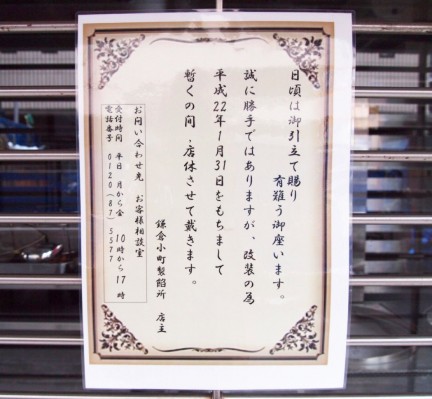 日頃は御引立て賜り
有難う御座います。
誠に勝手ではありますが、改装の為
平成22年1月31日をもちまして
暫くの間、店休させて戴きます。
鎌倉小町製餡所 店主
お問い合わせ先 お客様相談室
受付時間 平日 月から金 10時から17時
電話番号 0120(87)3577